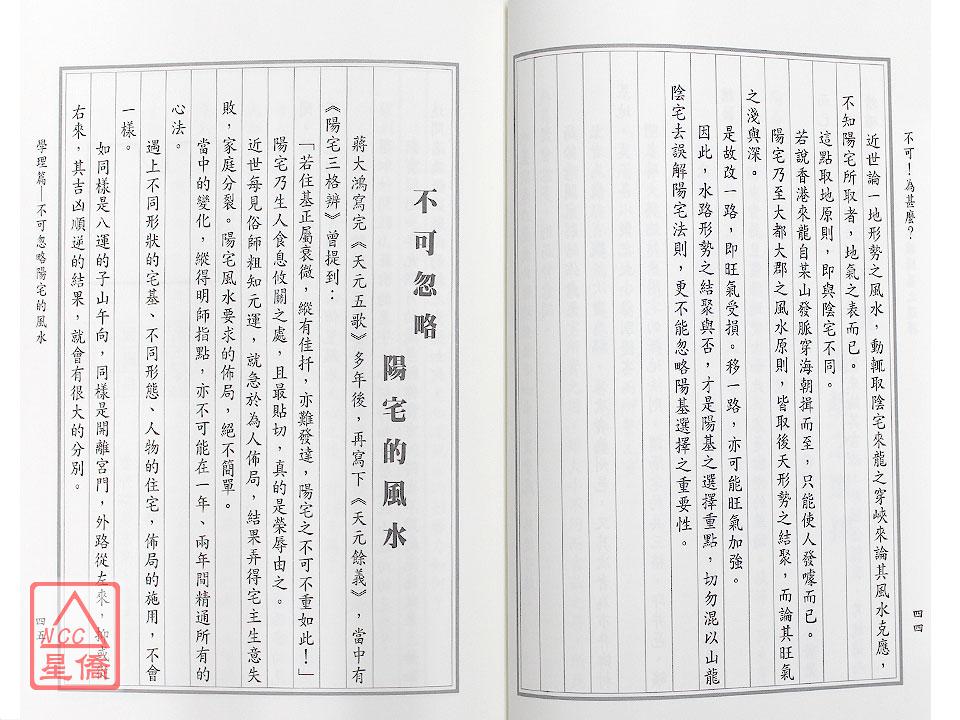 不可！為甚麼？
近世論一地形勢之風水，動輒取陰宅來龍之穿峽來論其風水克應，
不知陽宅所取者，地氣之表而已。
這點取地原則，即與陰宅不同。
若說香港來龍自某山發脈穿海朝揖而至，只能使人發噱而已。
陽宅乃至大都大郡之風水原則，皆取後天形勢之結聚，而論其旺氣
之淺與深。
是故改一路，即旺氣受損。移一路，亦可能旺氣加強。
因此，水路形勢之結聚與否，才是陽基之選擇重點，切勿混以山龍
陰宅去誤解陽宅法則，更不能忽略陽基選擇之重要性。
四四
不可忽略
陽宅的風水
蔣大鴻寫完《天元五歌》多年後，再寫下《天元餘義》，當中有
《陽宅三格辨》曾提到：
「若住基正屬衰微，縱有佳扦，亦難發達，陽宅之不可不重如此！」
陽宅乃生人食息攸關之處，且最貼切，真的是榮辱由之。
近世每見俗師粗知元運，就急於為人佈局，結果弄得宅主生意失
敗，家庭分裂。陽宅風水要求的佈局，絕不簡單。
當中的變化，縱得明師指點，亦不可能在一年、兩年間精通所有的
心法。
遇上不同形狀的宅基、不同形態、人物的住宅，佈局的施用，不會
一樣。
如同樣是八運的子山午向，同樣是開離宮門，外路從左來，抑或從
右來，其吉凶順逆的結果，就會有很大的分別。
學理篇—不可忽略陽宅的風水
四五
NCC
星僑